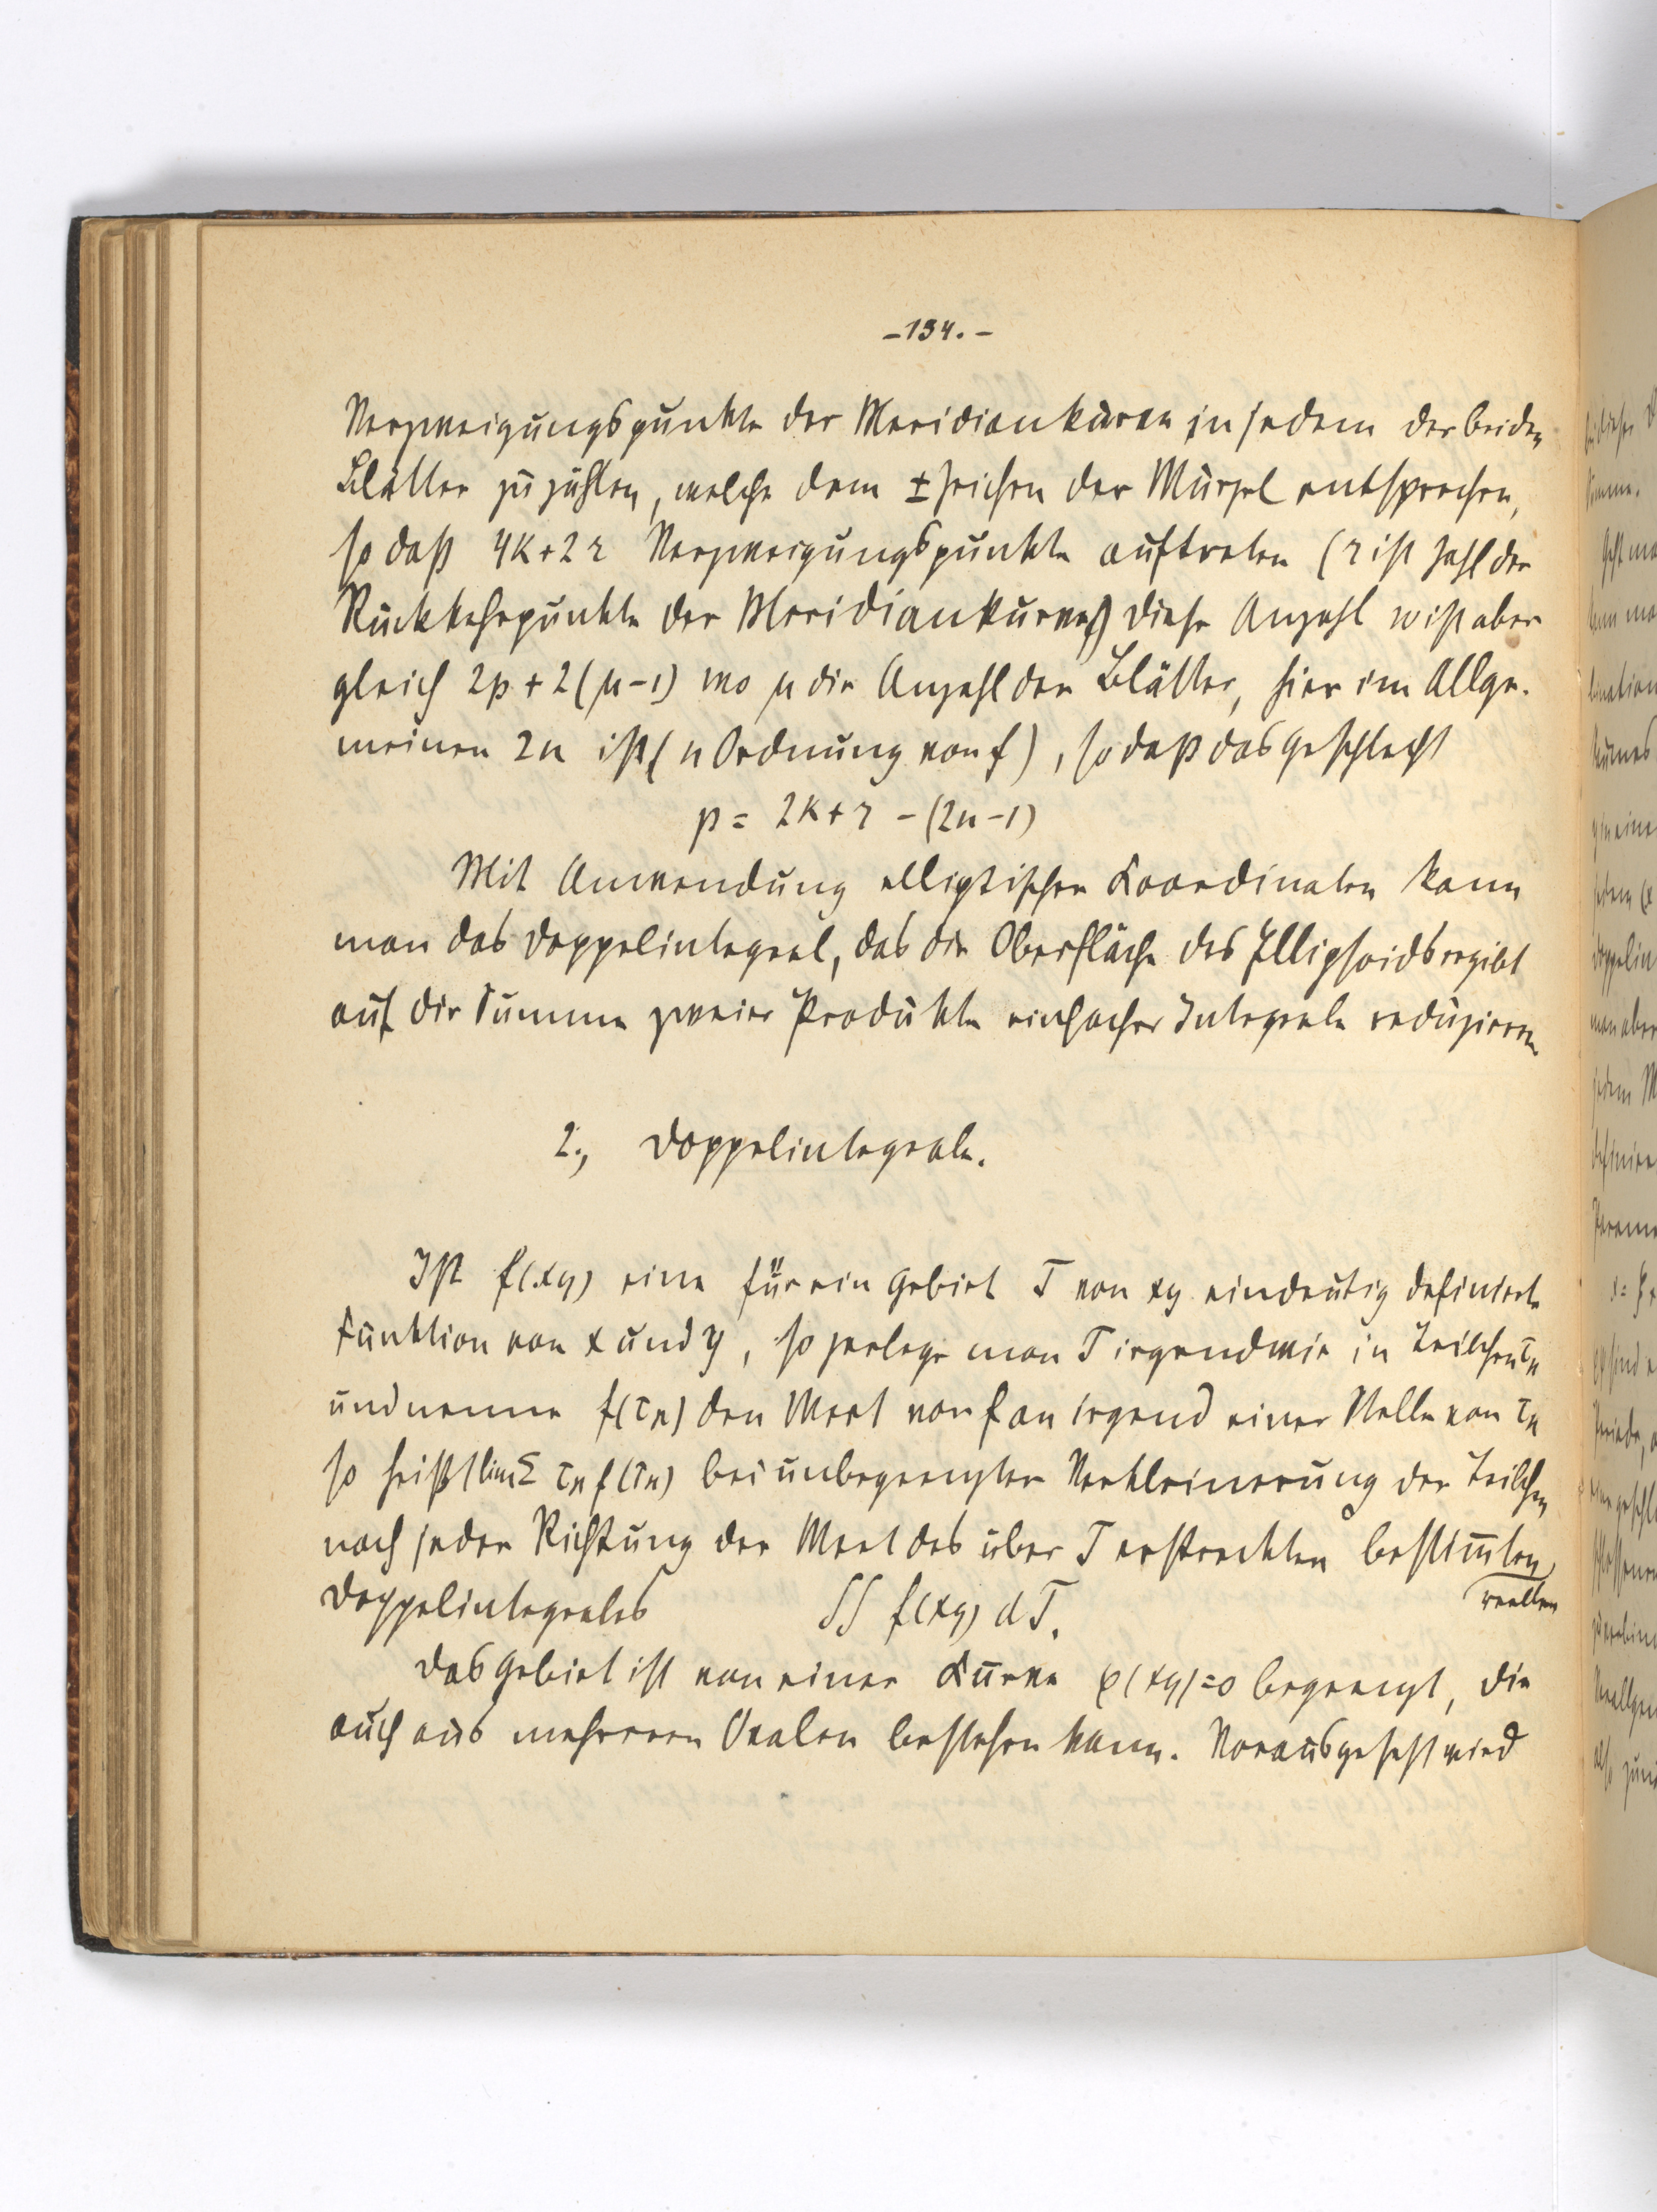 -134.-
Verzweigungspunkte der Meridiankurve in jedem der beiden
Blätter zu zählen, welche dem ± Zeichen der Wurzel entsprechen,
so daß 4k+2r Verzweigungspunkte auftreten (r ist Zahl der
Rückkehrpunkte der Meridiankurve) diese Anzahl w ist aber
gleich 2p + 2(μ-1) wo μ die Anzahl der Blätter, hier im Allge-
meinen 2n ist (n Ordnung von f), so daß das Geschlecht
p = 2k + r - (2n-1)
Mit Anwendung elliptischer Koordinaten kann
man das Doppelintegral, das die Oberfläche des Ellipsoids ergibt
auf die Summe zweier Produkte einfacher Integrale reduzieren
2., Doppelintegrale.
Ist f(xy) eine für ein Gebiet T von xy eindeutig definierte
Funktion von x und y, so zerlege man T irgendwie in Teilchen τκ
und nenne f(τκ) den Wert von f an irgend einer Stelle von τκ
so heißt lim Σ τκ f(τκ) bei unbegrenzter Verkleinerung der Teilchen
nach jeder Richtung der Wert des über T erstreckten bestim̅ten
reellen
Doppelintegrales ∫∫ f(xy) dT.
Das Gebiet ist von einer Kurve φ(xy)=0 begrenzt, die
auch aus mehreren Ovalen bestehen kann. Vorausgesetzt wird